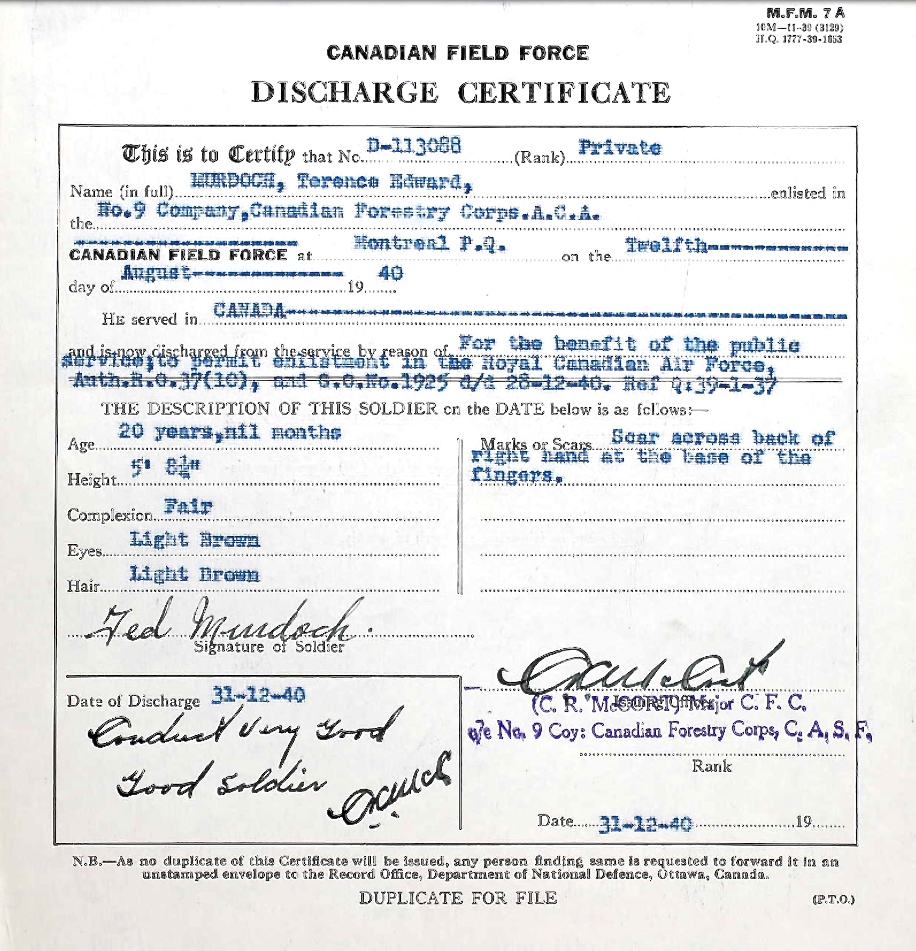 M.F.M. 7 A
10M—11-39 (3129)
H.Q. 1777-39-1653
CANADIAN FIELD FORCE
DISCHARGE CERTIFICATE
This is to Certify that No. D-113088 (Rank) Private
Name (in full) MURDOCH, Terence Edward, enlisted in
the No.9 Company,Canadian Forestry Corps.A.C.A.
CANADIAN FIELD FORCE at Montreal P.Q. on the Twelfth
day of August 19 40
HE served in CANADA
and is now discharged from the service by reason of For the benefit of the public
service;to permit enlistment in the Royal Canadian Air Force,
Auth.R.O.37(10), and G.O.No.1925 d/d 28-12-40. Ref Q:39-1-37
THE DESCRIPTION OF THIS SOLDIER on the DATE below is as follows:—
Age 20 years,nil months
Height 5' 8½"
Complexion Fair
Eyes Light Brown
Hair Light Brown
Marks or Scars Scar across back of
right hand at the base of the
fingers.
Ted Murdoch.
Signature of Soldier
Date of Discharge 31-12-40
Conduct Very Good
Good Soldier
(C. R. McCORT) Major C. F. C.
o/c No. 9 Coy: Canadian Forestry Corps, C. A. S. F.
Rank
Date 31-12-40 19
N.B.—As no duplicate of this Certificate will be issued, any person finding same is requested to forward it in an
unstamped envelope to the Record Office, Department of National Defence, Ottawa, Canada.
DUPLICATE FOR FILE
(P.T.O.)